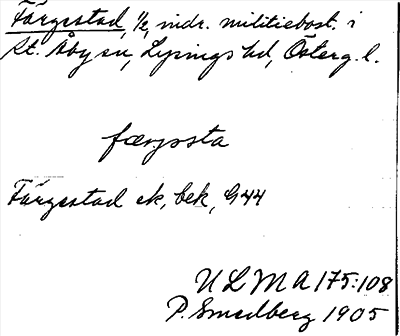 Färgestad, 1/2, indr. militiebost. i
St. Åby sn, Lysings hd, Österg. l.
færjsta
Färgestad ek, bek, G44
ULMA 175:108
P. Smedberg 1905